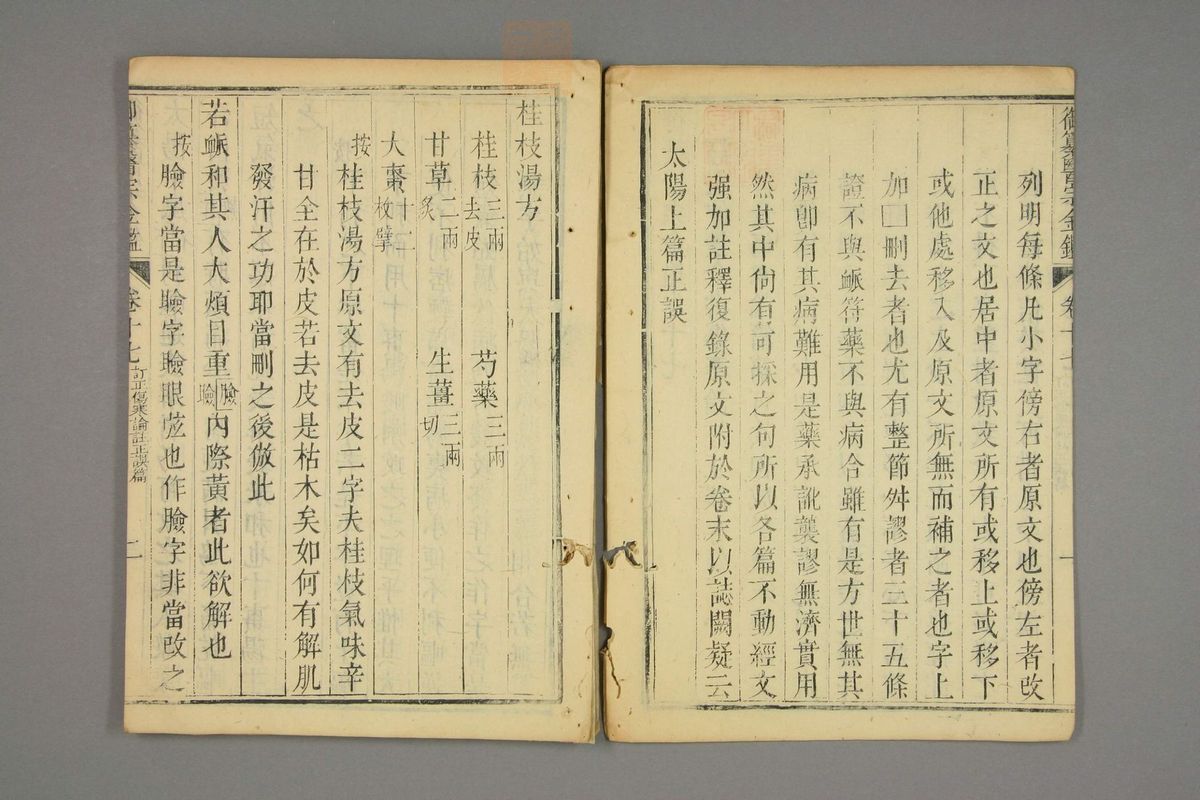 列明每條凡小字傍右者原文也傍左者改
正之文也居中者原文所有或移上或移下
或他處移入及原文所無而補之者也字上
加囗刪去者也尤有整節舛謬者三十五條
證不與脈符藥不與病合雖有是方世無其
病卽有其病難用是藥承訛襲謬無濟實用
然其中尙有可採之句所以各篇不動經文
强加註釋復錄原文附於卷末以誌闕疑云
太陽上篇正誤
桂枝湯方
桂枝三兩去皮 芍藥三兩
甘草二兩炙 生薑三兩切
大棗十二枚擘
按桂枝湯方原文有去皮二字夫桂枝氣味辛
甘全在於皮若去皮是枯木矣如何有解肌
發汗之功耶當刪之後倣此
若脈和其人大煩目重臉瞼內際黃者此欲解也
按臉字當是瞼字瞼眼弦也作臉字非當改之
御纂醫宗金鑑 卷十七 訂正傷寒論註正誤篇 二